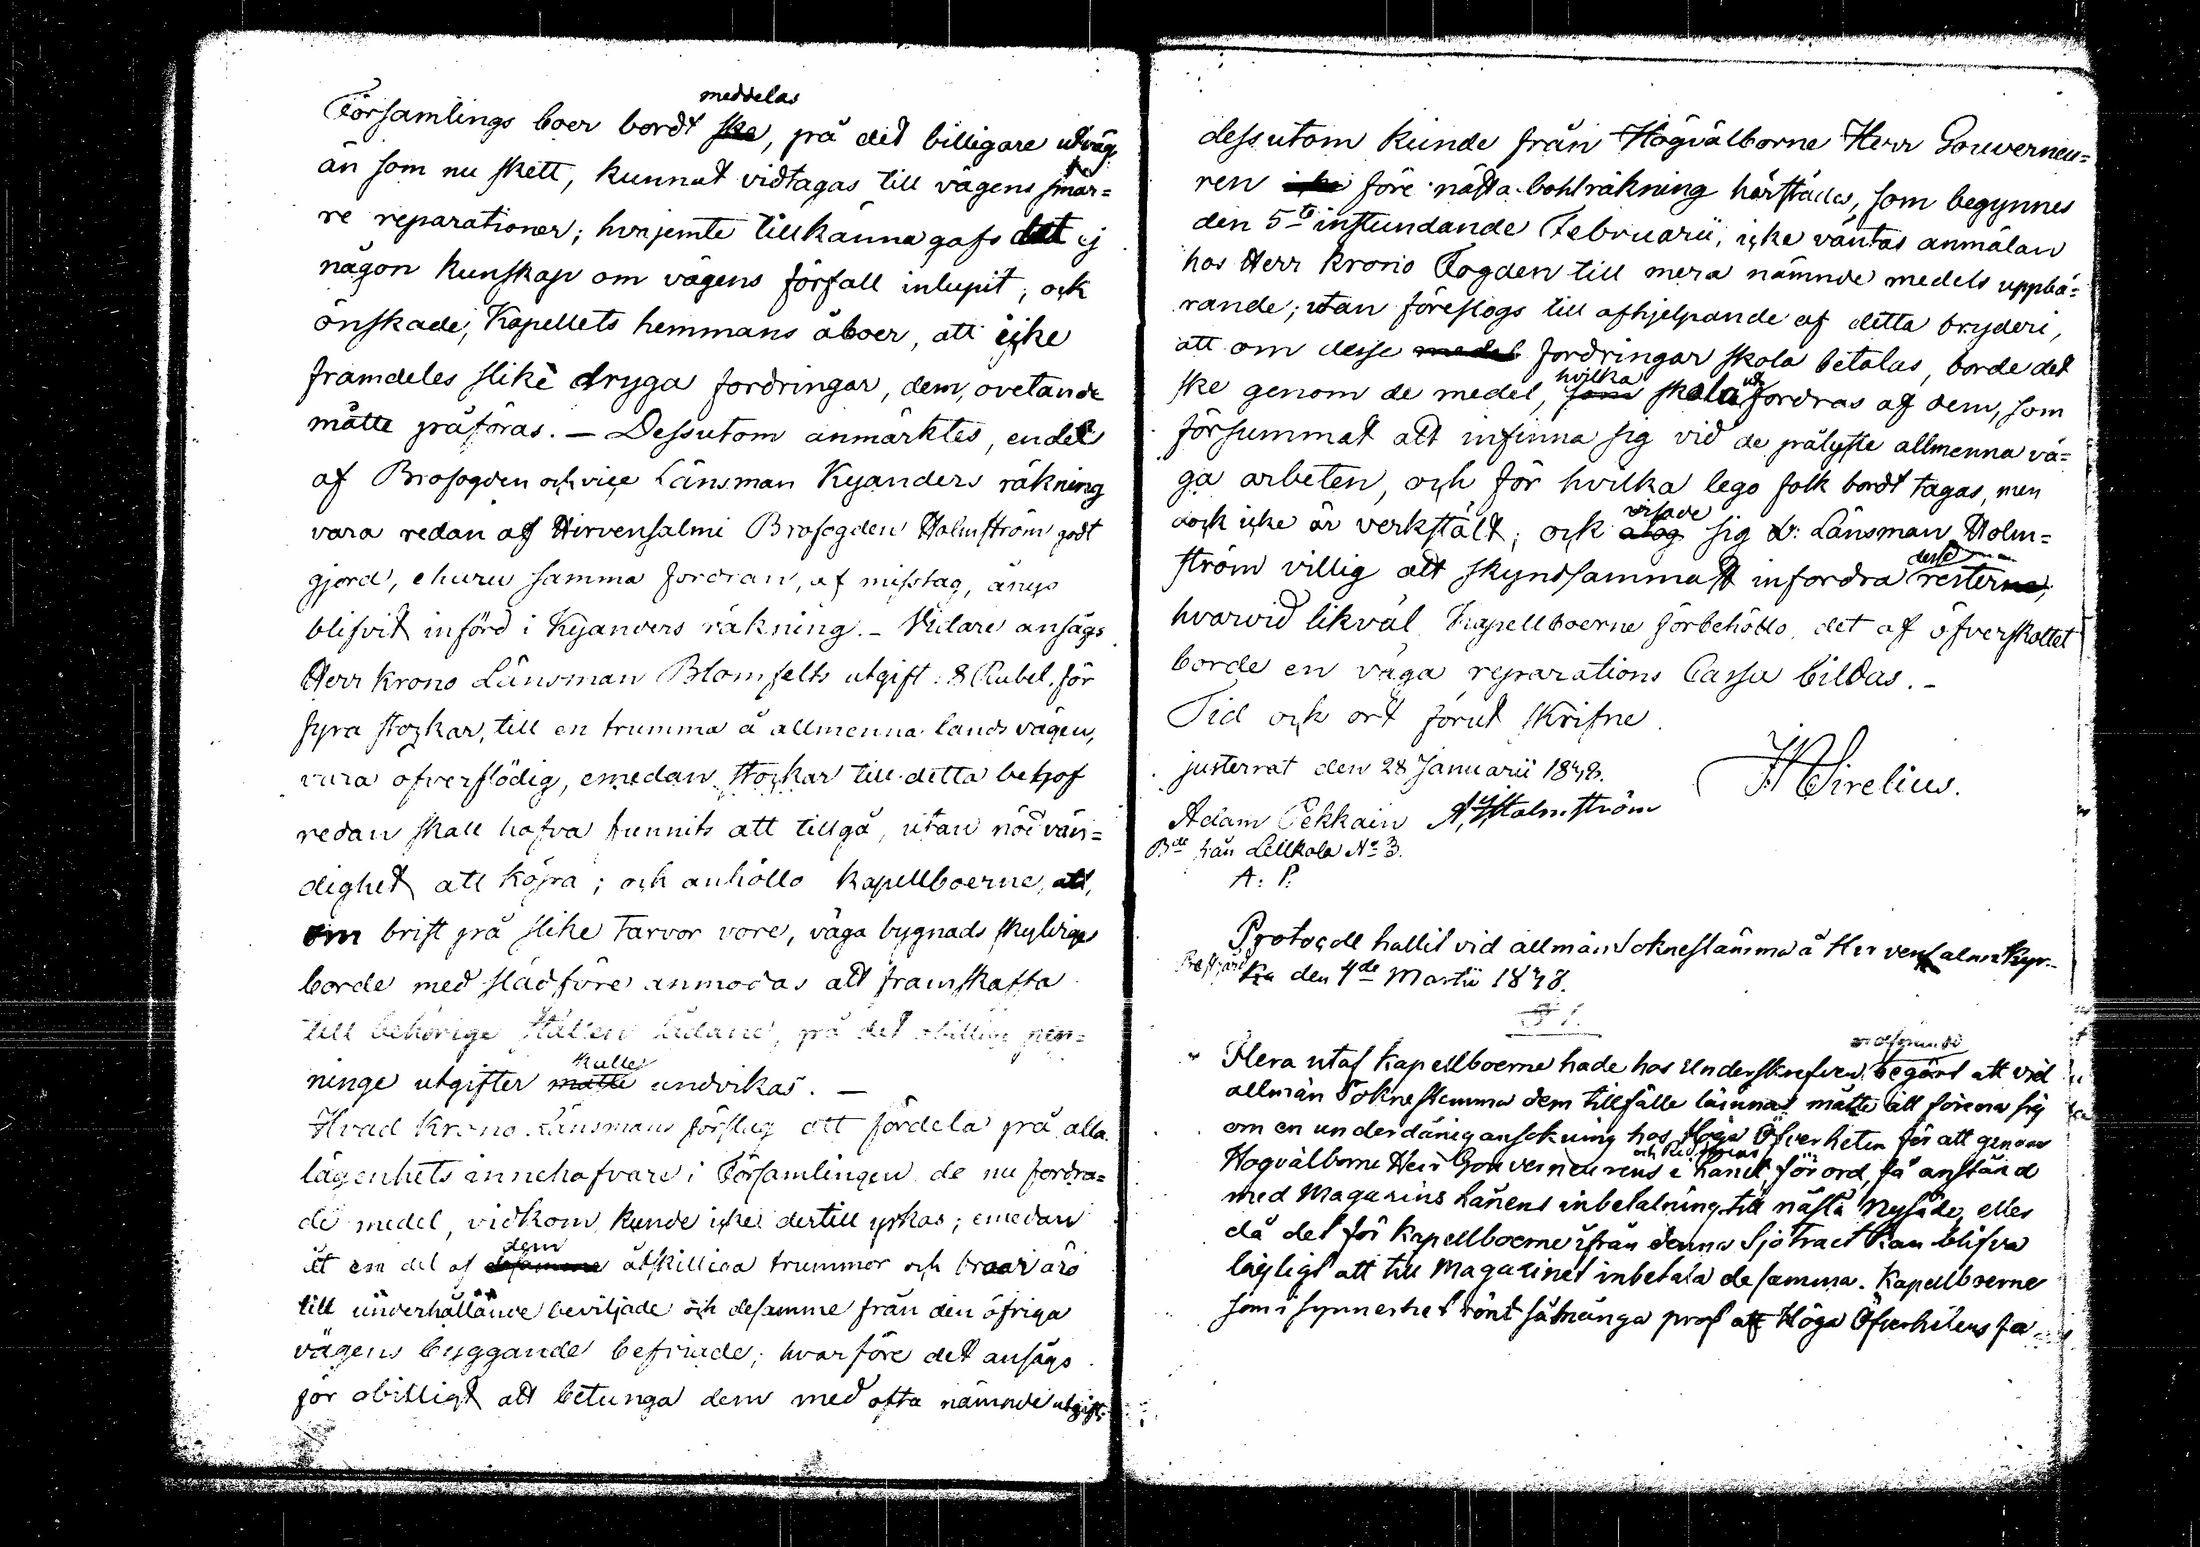 meddelas
Församlings boer bordt ske, på det billigare utväg
än som nu skett, kunnat vidtagas till vägens smär-
re reparationer; hvarjemte tillkänna gafs det ej
någon kunskap om vägens förfall inlupit, och
önskade, Kapellets hemmans åboer, att icke
framdeles slike dryga fordringar, dem, ovetande
måtte påföras. — Dessutom anmärktes, endel
af Brofogden och vice Länsman Kyanders räkning
vara redan af Hirvensalmi Brofogden Holmström godt
gjord, ehuru samma fordran, af misstag, ånyo
blifvit införd i Kyanders räkning. — Vidare ansågs
Herr Krono Länsman Blomfelts utgift 8 Rubel, för
fyra stockar, till en trumma å allmenna lands vägen,
vara öfverflödig, emedan stockar till detta behof
redan skall hafva funnits att tillgå, utan nödvän-
dighet att köpa; och anhöllo kapellboerne, att,
om brist på slike tarvor vore, väga bygnads skyldige
borde med slädföre anmodas att framskaffa
till behörige ställen sådane, på det obillige pen-
skulle
ninge utgifter måtte undvikas. —
Hvad Krono Länsmans förslag att fördela på alla
lägenhets innehafvare i Församlingen de nu fordra-
de medel, vidkom, kunde icke dertill yrkas; emedan
dem
åt en del af desamme åtskilliga trummor och broar äro
till underhållande beviljade och desamme från den öfriga
vägens byggande befriade; hvarföre det ansågs
för obilligt att betunga dem med ofta nämnde utgift;
dessutom kunde från Högvälborne Herr Gouverneu-
ren icke före nästa bohlräkning härstädes, som begynnes
den 5te instundande Februarii, icke väntas anmälan
hos Herr Krono Fogden till mera nämnde medels uppbä-
rande; utan föreslogs till afhjelpande af detta bryderi,
att om desse medel fordringar skola betalas, borde det
hvilka ut
ske genom de medel, som skola fordras af dem, som
försummat att infinna sig vid de pålyste allmenna vä-
ga arbeten, och för hvilka lego folk bordt tagas, men
visade
dock icke är verkstäldt; och alog sig L: Länsman Holm-
desse
ström villig att skyndsammast infordra resterna,
hvarvid likväl Kapellboerne förbehöllo, det af öfverskottet
borde en väga reparations Cassa bildas. —
Tid och ort förut skrifne.
justerrat den 28 Januarii 1848.
Sirelius.
Adam Pekkain Holmström
Bde från Lellkola No 3.
A. P.
Protocoll hållit vid allmän Soknestämma å Hirvensalmi Kyr-
ka den 4de Martii 1848.
§ 1.
Flera utaf Kapellboerne hade hos Underskrefven begärt att vid
allmän Soknestemma dem tillfälle lämnas måtte att förena sig
om en underdånig ansökning hos Höga Öfverheten för att genom
och
Högvälborne Herr Gouverneurens i Länet förord, få anstånd
med Magazins Lånens inbetalning till nästa Nysåde, eller
då det för Kapellboerne ifrån denna Sjötract kan blifva
läjligt att till Magazinet inbetala desamma. Kapellboerne
som i synnerhet rönt såmånga prof af Höga Öfverhetens fa-